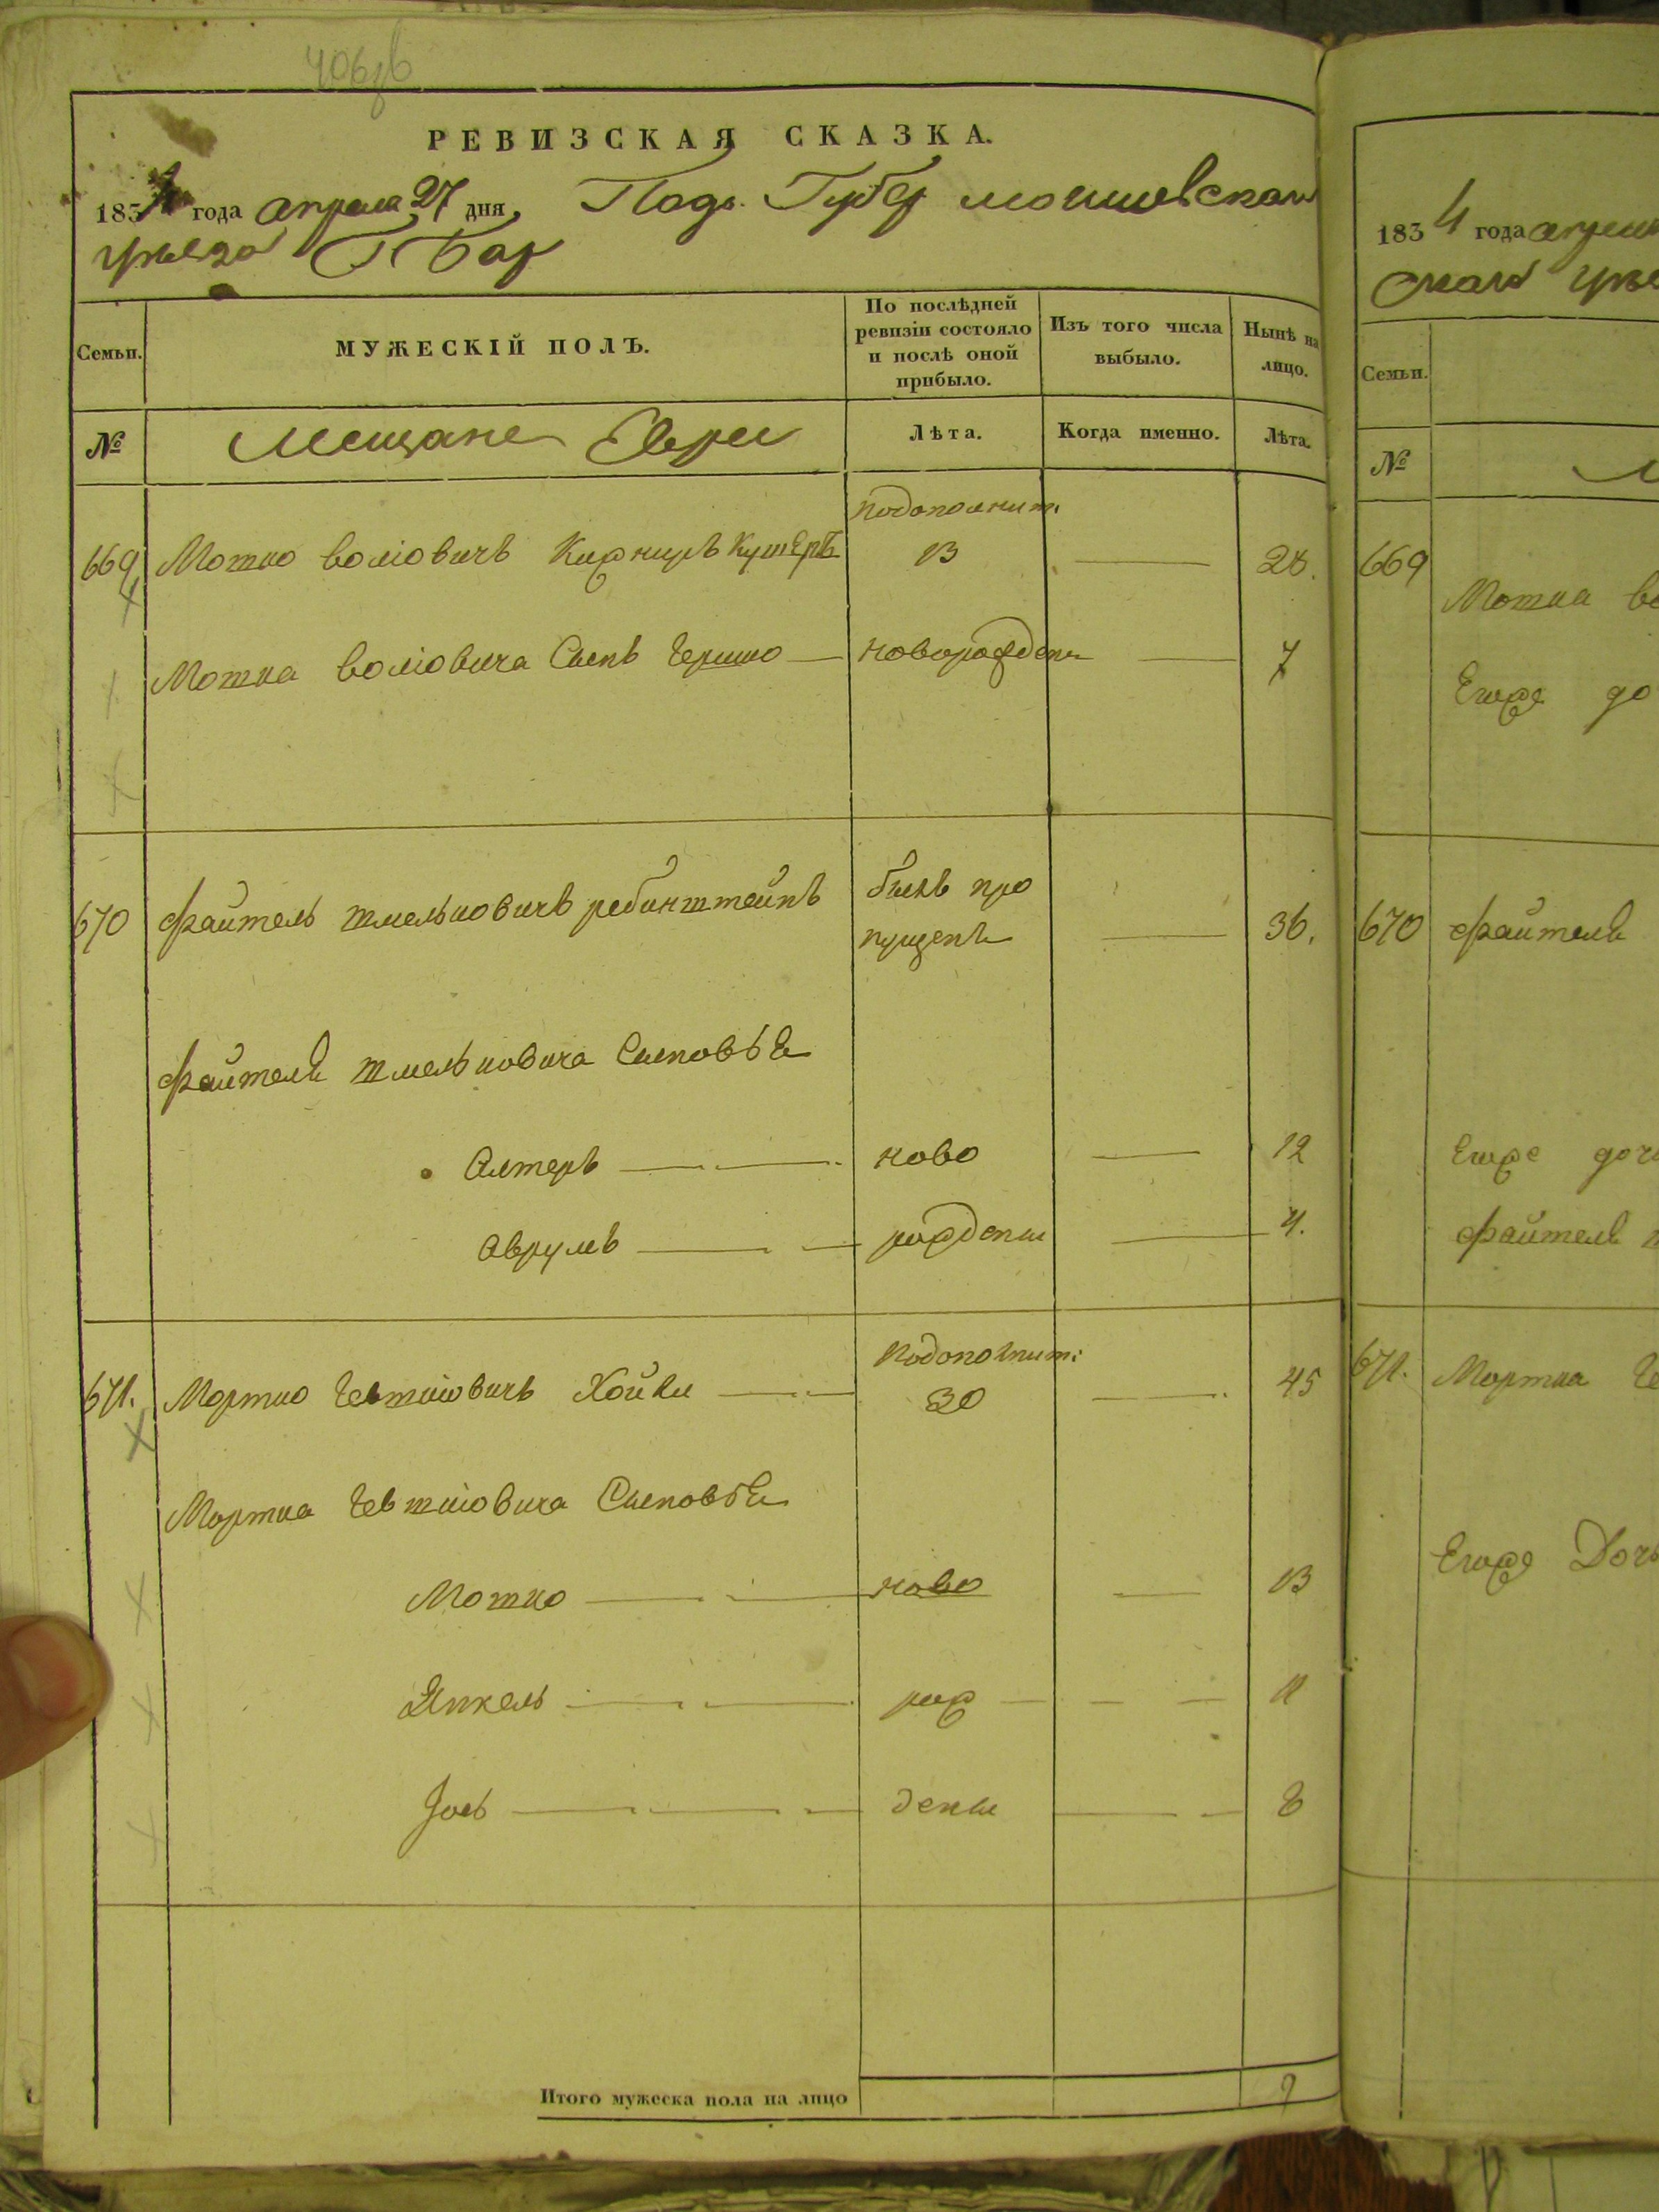 406об
РЕВИЗСКАЯ СКАЗКА.
1834 года апреля 27 дня, Подо. Губер могилевскаго
уѣзда Г Бар
Семьи.
МУЖЕСКІЙ ПОЛЪ.
По послѣдней ревизіи состояло и послѣ оной прибыло.
Изъ того числа выбыло.
Нынѣ на лицо.
№
Мещане Евреи
Лѣта.
Когда именно.
Лѣта.
подополнит.
669 Мошко Волковичъ Кушеръ 13 28.
Мошка Волковича Сынъ Гершко новорожденъ 7
670 Файтель Шмельковичъ ребинштейнъ былъ про
пущенъ 36.
Файтеля Шмельковича Сыновья
Алтеръ ново 12
Аврумъ рожденъ 4.
подополнит:
671. Мортко Хойки 30 45
Мортка Сыновья
Мошко ново 13
Янкель рож 11
Іось дены 8
Итого мужеска пола на лицо
1834 года апреля
скаго уѣз
Семьи.
№
669
Мошка Во
Егоже до
670 Файтеля
Егоже доч
Файтеля
671. Мортка
Егоже Доч